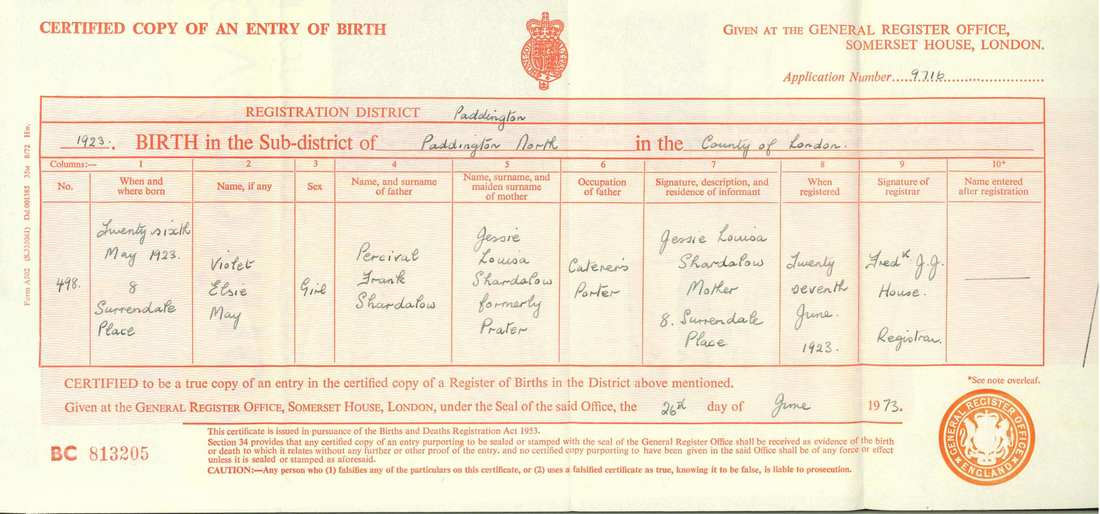 CERTIFIED COPY OF AN ENTRY OF BIRTH
GIVEN AT THE GENERAL REGISTER OFFICE,
SOMERSET HOUSE, LONDON.
Application Number 971b
REGISTRATION DISTRICT Paddington
1923. BIRTH in the Sub-district of Paddington North in the County of London.
Columns:— 1 2 3 4 5 6 7 8 9 10*
No. When and where born Name, if any Sex Name, and surname of father Name, surname, and maiden surname of mother Occupation of father Signature, description, and residence of informant When registered Signature of registrar Name entered after registration
498.
Twenty sixth
May 1923.
8
Surrendale
Place
Violet
Elsie
May
Girl
Percival
Frank
Shardalow
Jessie
Louisa
Shardalow
formerly
Prater
Caterer's
Porter
Jessie Louisa
Shardalow
Mother
8. Surrendale
Place
Twenty
seventh
June.
1923.
Fredk J.J.
House.
Registrar.
*See note overleaf.
CERTIFIED to be a true copy of an entry in the certified copy of a Register of Births in the District above mentioned.
Given at the GENERAL REGISTER OFFICE, SOMERSET HOUSE, LONDON, under the Seal of the said Office, the 26th day of June 1973.
BC 813205
This certificate is issued in pursuance of the Births and Deaths Registration Act 1953.
Section 34 provides that any certified copy of an entry purporting to be sealed or stamped with the seal of the General Register Office shall be received as evidence of the birth
or death to which it relates without any further or other proof of the entry, and no certified copy purporting to have been given in the said Office shall be of any force or effect
unless it is sealed or stamped as aforesaid.
CAUTION:—Any person who (1) falsifies any of the particulars on this certificate, or (2) uses a falsified certificate as true, knowing it to be false, is liable to prosecution.
GENERAL REGISTER OFFICE
ENGLAND
Form A502
8/72 Hw.